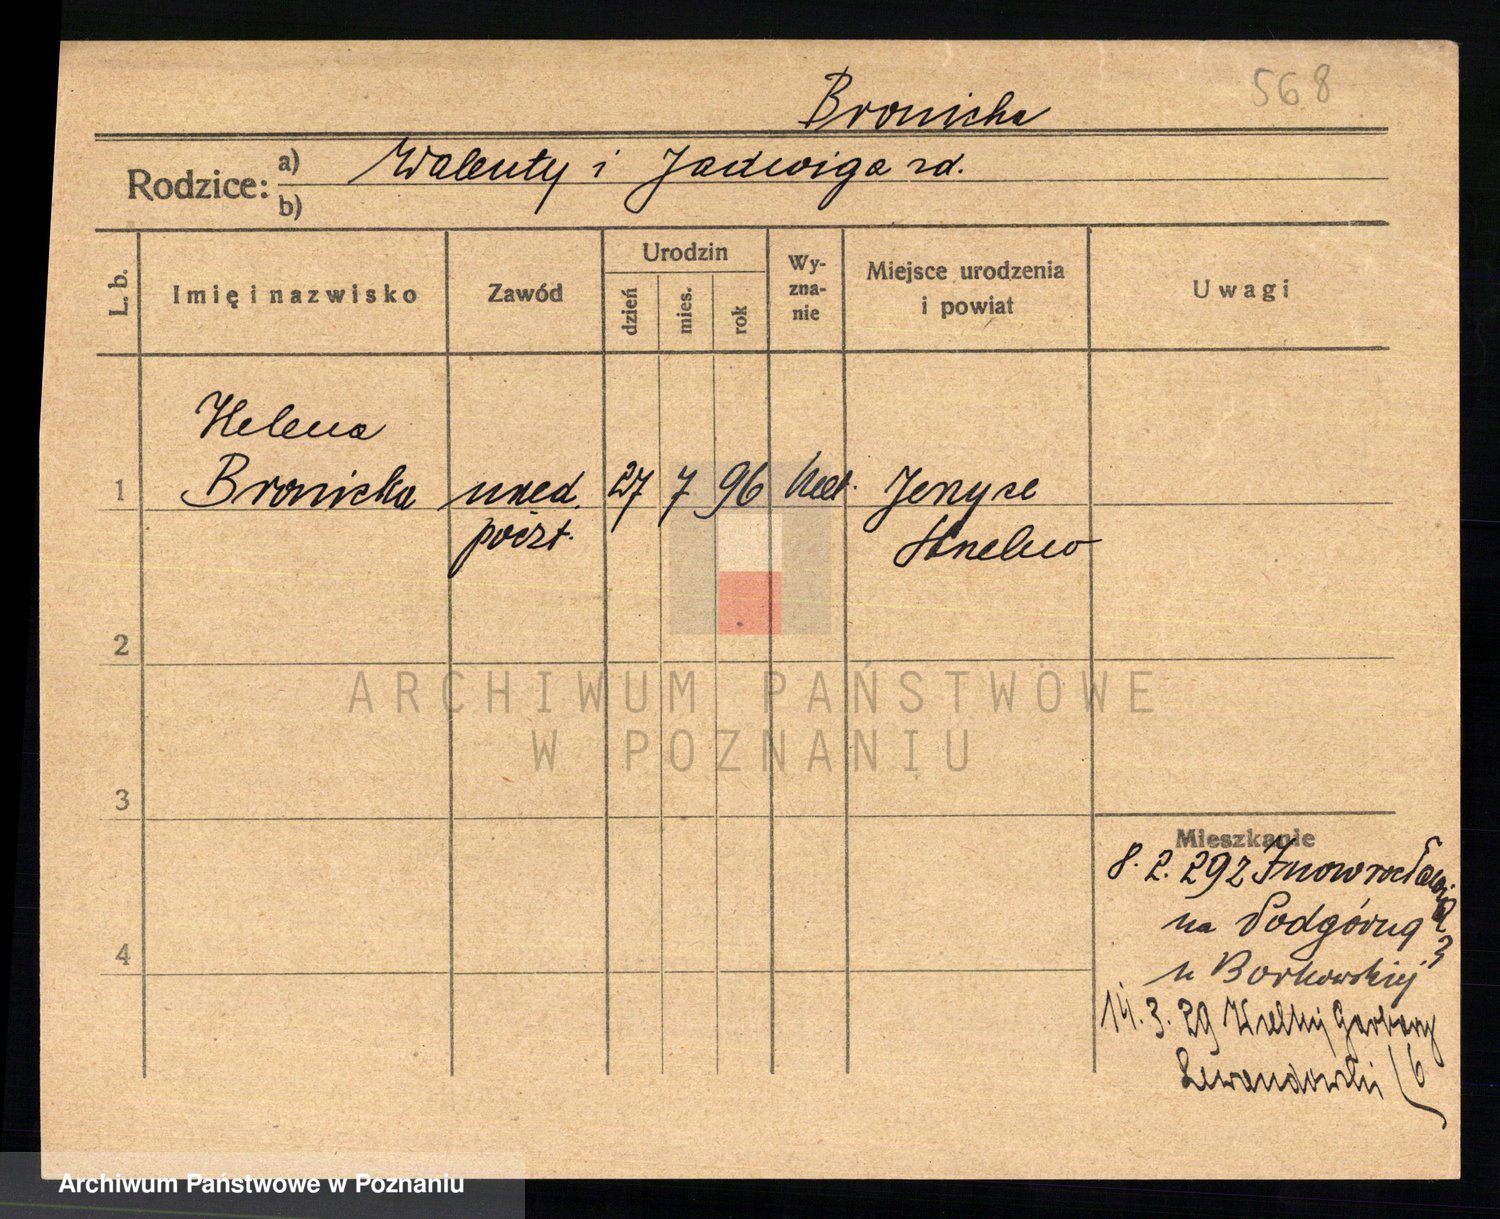 568
Bronicka
Rodzice: a) Walenty i Jadwiga zd.
b)
L. b.
Imię i nazwisko
Zawód
Urodzin
dzień
mies.
rok
Wy-
zna-
nie
Miejsce urodzenia
i powiat
Uwagi
Helena
1 Bronicka urzęd. 27 7 96 kat.
poczt.
2
3
4
Mieszkanie
8. 2. 29 z Inowrocławia
na Podgórną
3
u Borkowskiej
14. 3. 29 Wielkie Garbary
Lewandowski 6
ARCHIWUM PAŃSTWOWE
W POZNANIU
Archiwum Państwowe w Poznaniu